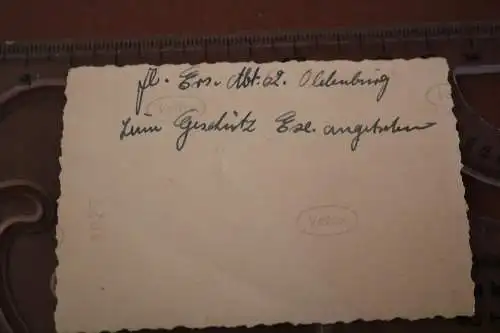 fl. Ers. Abt. 62. Oldenburg
zum Geschütz Exe. angetreten
Velox